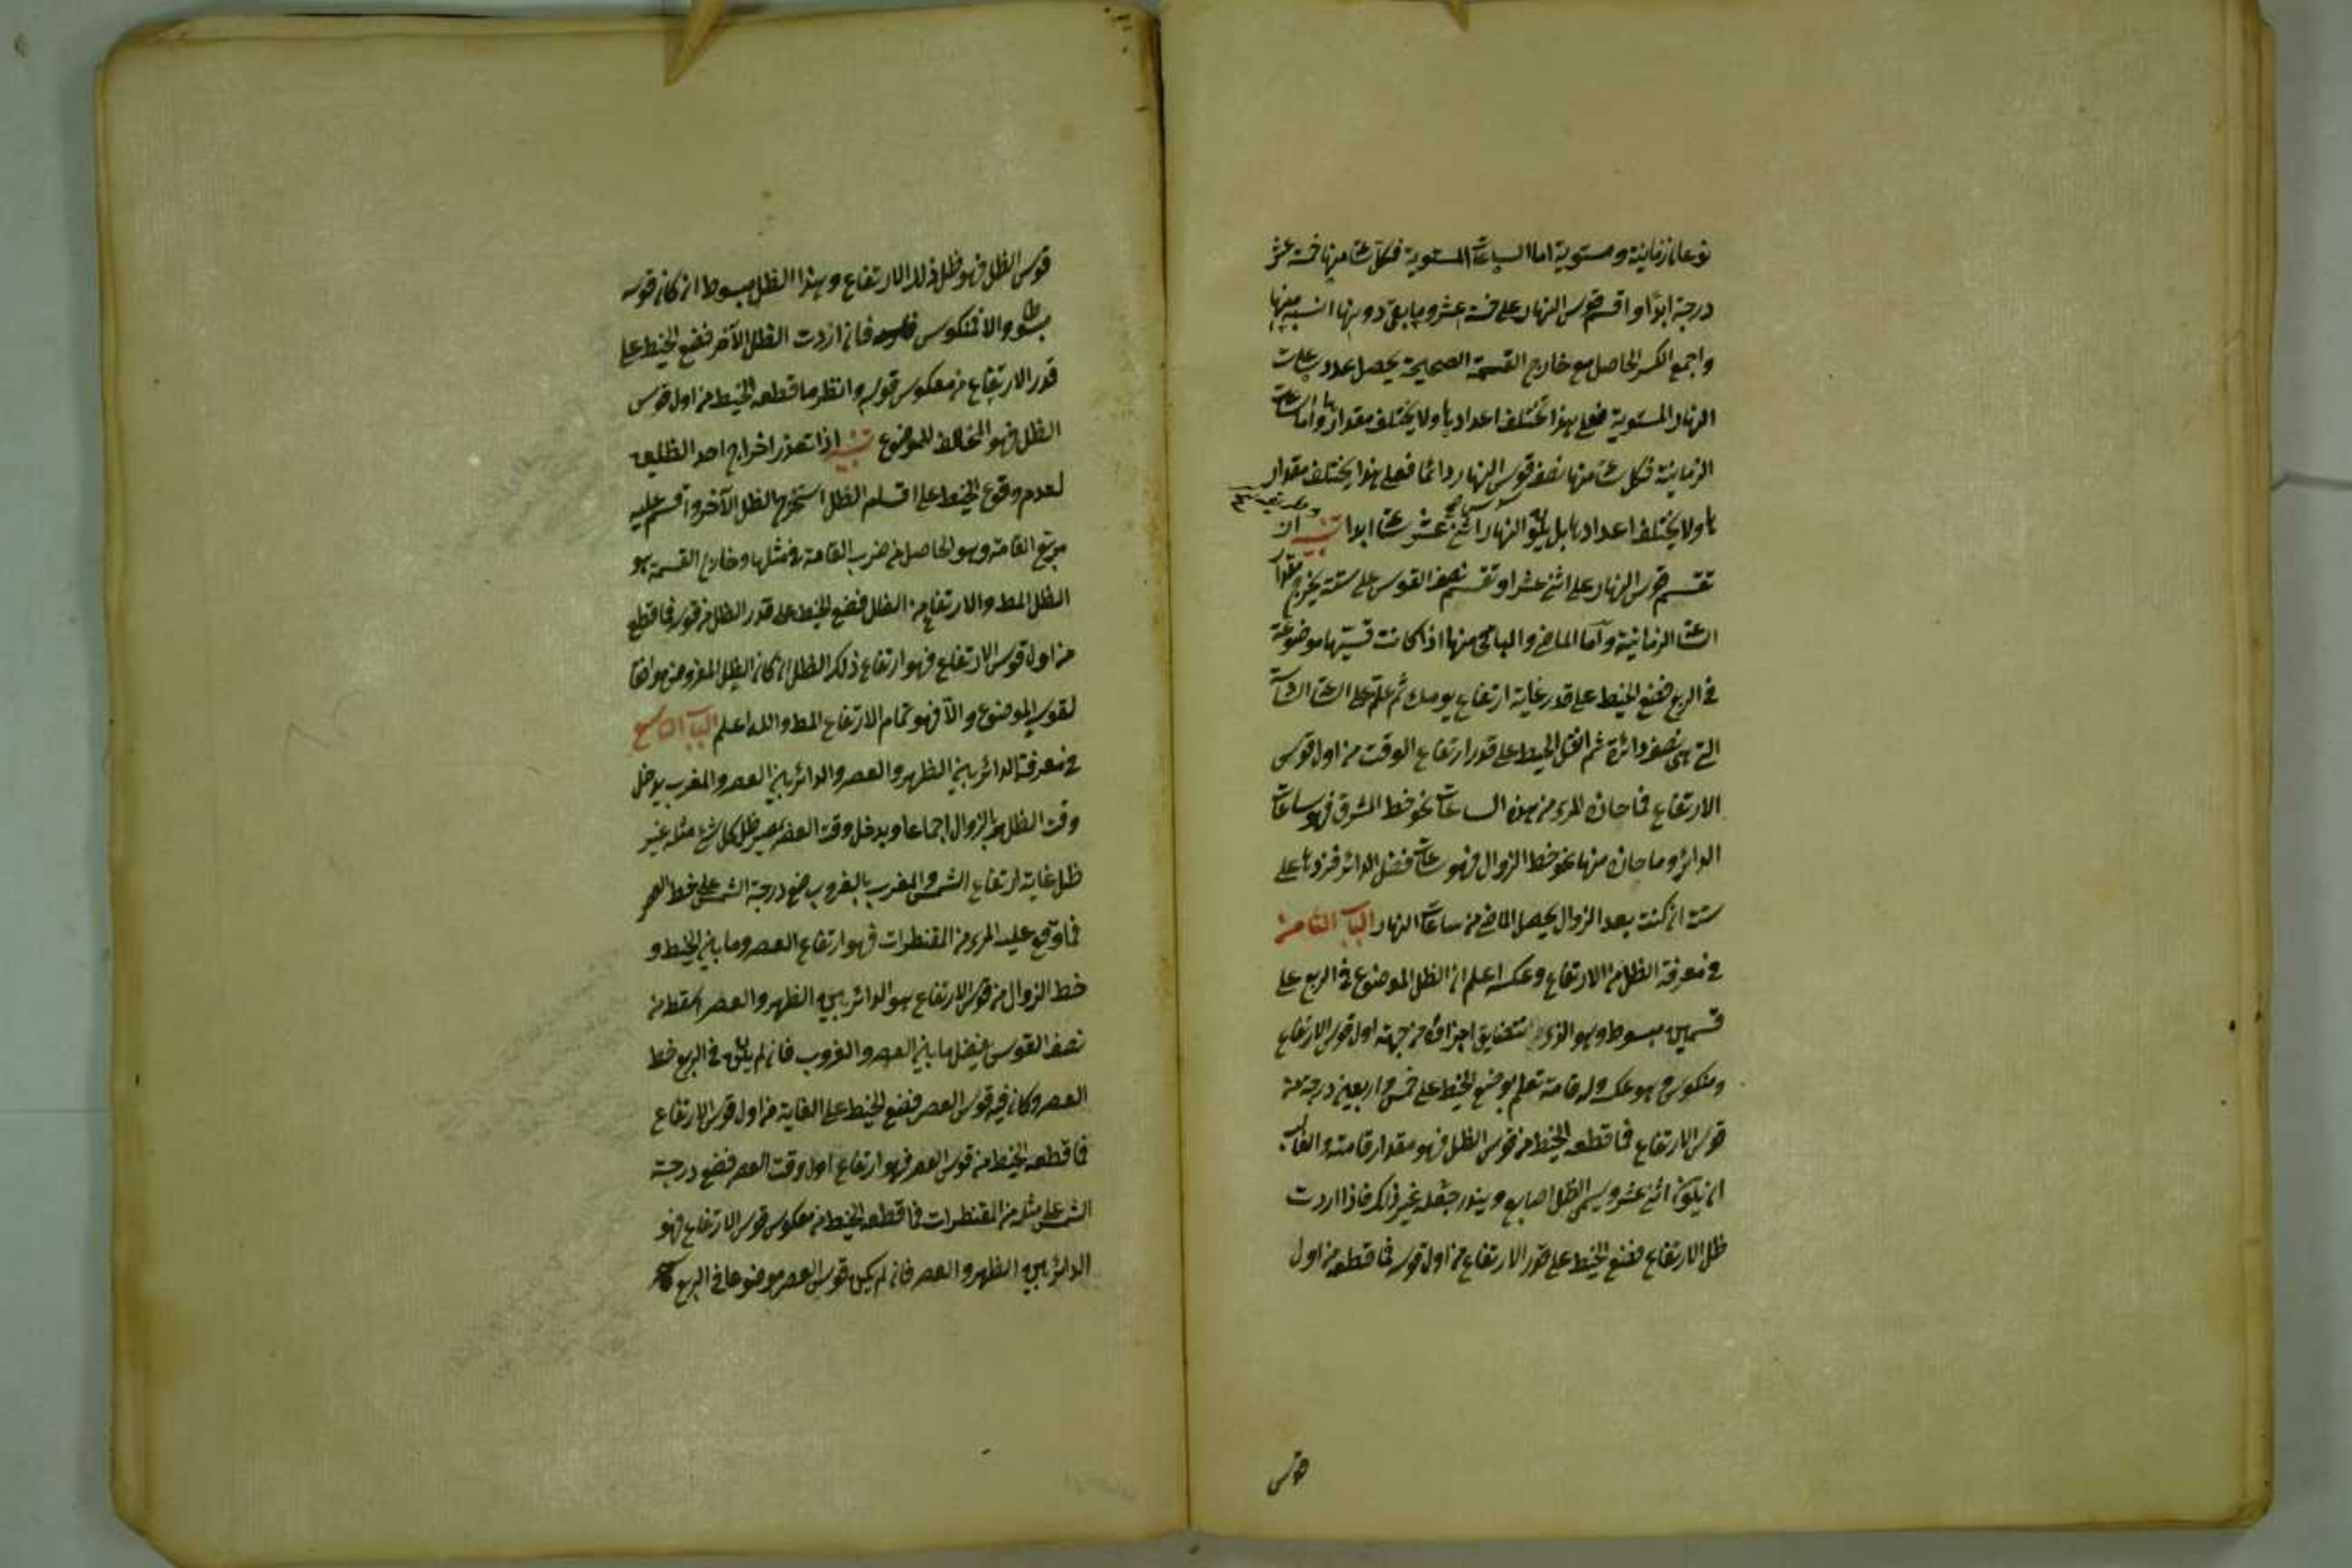 نوعان زمانية ومستوية اما الساعات المستوية فكل ساعة منها خمسة عشر
درجة ابدًا واقسم قوس النهار على خمسة عشر وما بقى دونها انسبه منها
واجمع الكسر الحاصل مع خارج القسمة الصحيحة يحصل عدد ساعات
النهار المستوية فعلى هذا تختلف اعدادها ولا يختلف مقدارها واما ساعات
الزمانية فكل ساعة منها نصف قوس النهار دائما فعلى هذا يختلف مقدار
ها ولا يختلف اعدادها بل يكون النهار اثنى عشر ساعة ابدا تنبيه ان
تقسم قوس النهار على اثنى عشر او تقسم نصف القوس على ستة يخرج مقدار
الساعة الزمانية وأما الماضى والباقى منها اذا كانت قسيّها موضوعة
فى الربع فضع الخيط على قدر غاية ارتفاع يومك ثم علّم على الساعة السادسة
التى هى نصف دائرة ثم انقل الخيط على قدر ارتفاع الوقت من اول قوس
الارتفاع فما حازه المرى من هذه الساعات نحو خط المشرق فهو ساعات
الدائر وما حازه منها نحو خط الزوال فهو ساعات فضل الدائر فزدها على
ستة ان كنت بعد الزوال يحصل الماضى من ساعات النهار الباب الثامن
فى معرفة الظل من الارتفاع وعكسه اعلم ان الظل الموضوع فى الربع على
قسمين مبسوط وهو الذى تتضايق اجزاؤه من جهة اول قوس الارتفاع
ومنكوس وهو عكسه وله قامة تعلم بوضع الخيط على خمس واربعين درجة من
قوس الارتفاع فما قطعه الخيط من قوس الظل فهو مقدار قامته والغالب
ان يكون اثنى عشر ويسمى الظل اصابع ويندر جعله غير ذلك فاذا اردت
ظل الارتفاع فضع الخيط على قدر الارتفاع من اول قوسه فما قطعه من اول
قوس
قوس الظل فهو ظل ذلك الارتفاع وهذا الظل مبسوط ان كان قوسه
مبسوطا والا فمنكوس فان اردت الظل الآخر فضع الخيط على
قدر الارتفاع من معكوس قوسه وانظر ما قطعه الخيط من اول قوس
الظل فهو المخالف للموضوع تنبيه اذا تعذر اخراج احد الظلين
لعدم وقوع الخيط على اقسام الظل استخرج الظل الآخر واقسم عليه
مربع القامة وهو الحاصل من ضرب القامة فى مثلها وخارج القسمة هو
الظل المط والارتفاع من الظل فضع الخيط على قدر الظل من قوسه فما قطع
من اول قوس الارتفاع فهو ارتفاع ذلك الظل ان كان الظل المفروض موافقا
لقوس الموضوع والّا فهو تمام الارتفاع المط والله اعلم الباب التاسع
فى معرفة الدائر بين الظهر والعصر والدائر بين العصر والمغرب يدخل
وقت الظهر بالزوال اجماعا ويدخل وقت العصر بمصير ظل كل شئ مثله غير
ظل غاية ارتفاع الشمس والمغرب بالغروب ضع درجة الشمس على خط العصر
فما وقع عليه المرى من المقنطرات فهو ارتفاع العصر وما بين الخيط و
خط الزوال من قوس الارتفاع هو الدائر بين الظهر والعصر اسقطه من
نصف القوس يفضل ما بين العصر والغروب فان لم يكن فى الربع خط
العصر وكان فيه قوس العصر فضع الخيط على الغاية من اول قوس الارتفاع
فما قطعه الخيط من قوس العصر فهو ارتفاع اول وقت العصر فضع درجة
الشمس على مثله من المقنطرات فما قطعه الخيط من معكوس قوس الارتفاع فهو
الدائر بين الظهر والعصر فان لم يكن قوس العصر موضوعا فى الربع